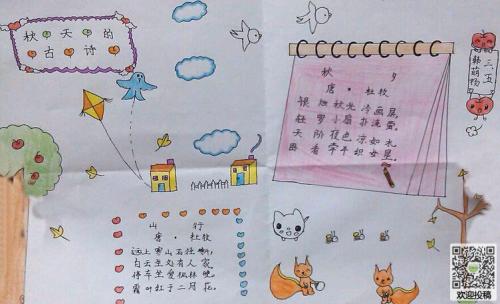 秋天的
古诗
秋 夕
唐·杜牧
银烛秋光冷画屏,
轻罗小扇扑流萤。
天阶夜色凉如水,
卧看牵牛织女星。
三、五
山 行
唐·杜牧
远上寒山石径斜,
白云生处有人家。
停车坐爱枫林晚,
霜叶红于二月花。
欢迎投稿